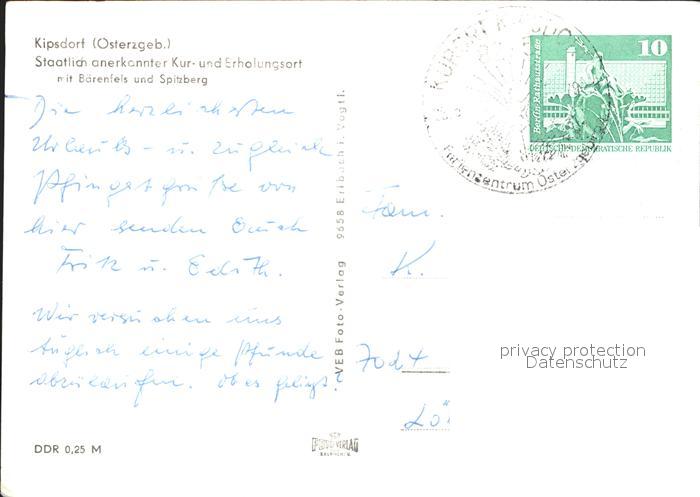 Kipsdorf (Osterzgeb.)
Staatlich anerkannter Kur- und Erholungsort
mit Bärenfels und Spitzberg
Die herzlichsten
Urlaubs- u. zugleich
Pfingstgrüße von
hier senden Euch
Fritz u. Edith.
Wir versuchen uns
täglich einige Pfunde
abzulaufen. Ob es gelingt?
DDR 0,25 M
VEB Foto-Verlag 9658 Erlbach i. Vogtl.
KURORT
Ferienzentrum Osterzgebirge
10
Berlin, Rathausstraße
DEUTSCHE DEMOKRATISCHE REPUBLIK
Fam.
K.
7027
Lö
privacy protection
Datenschutz